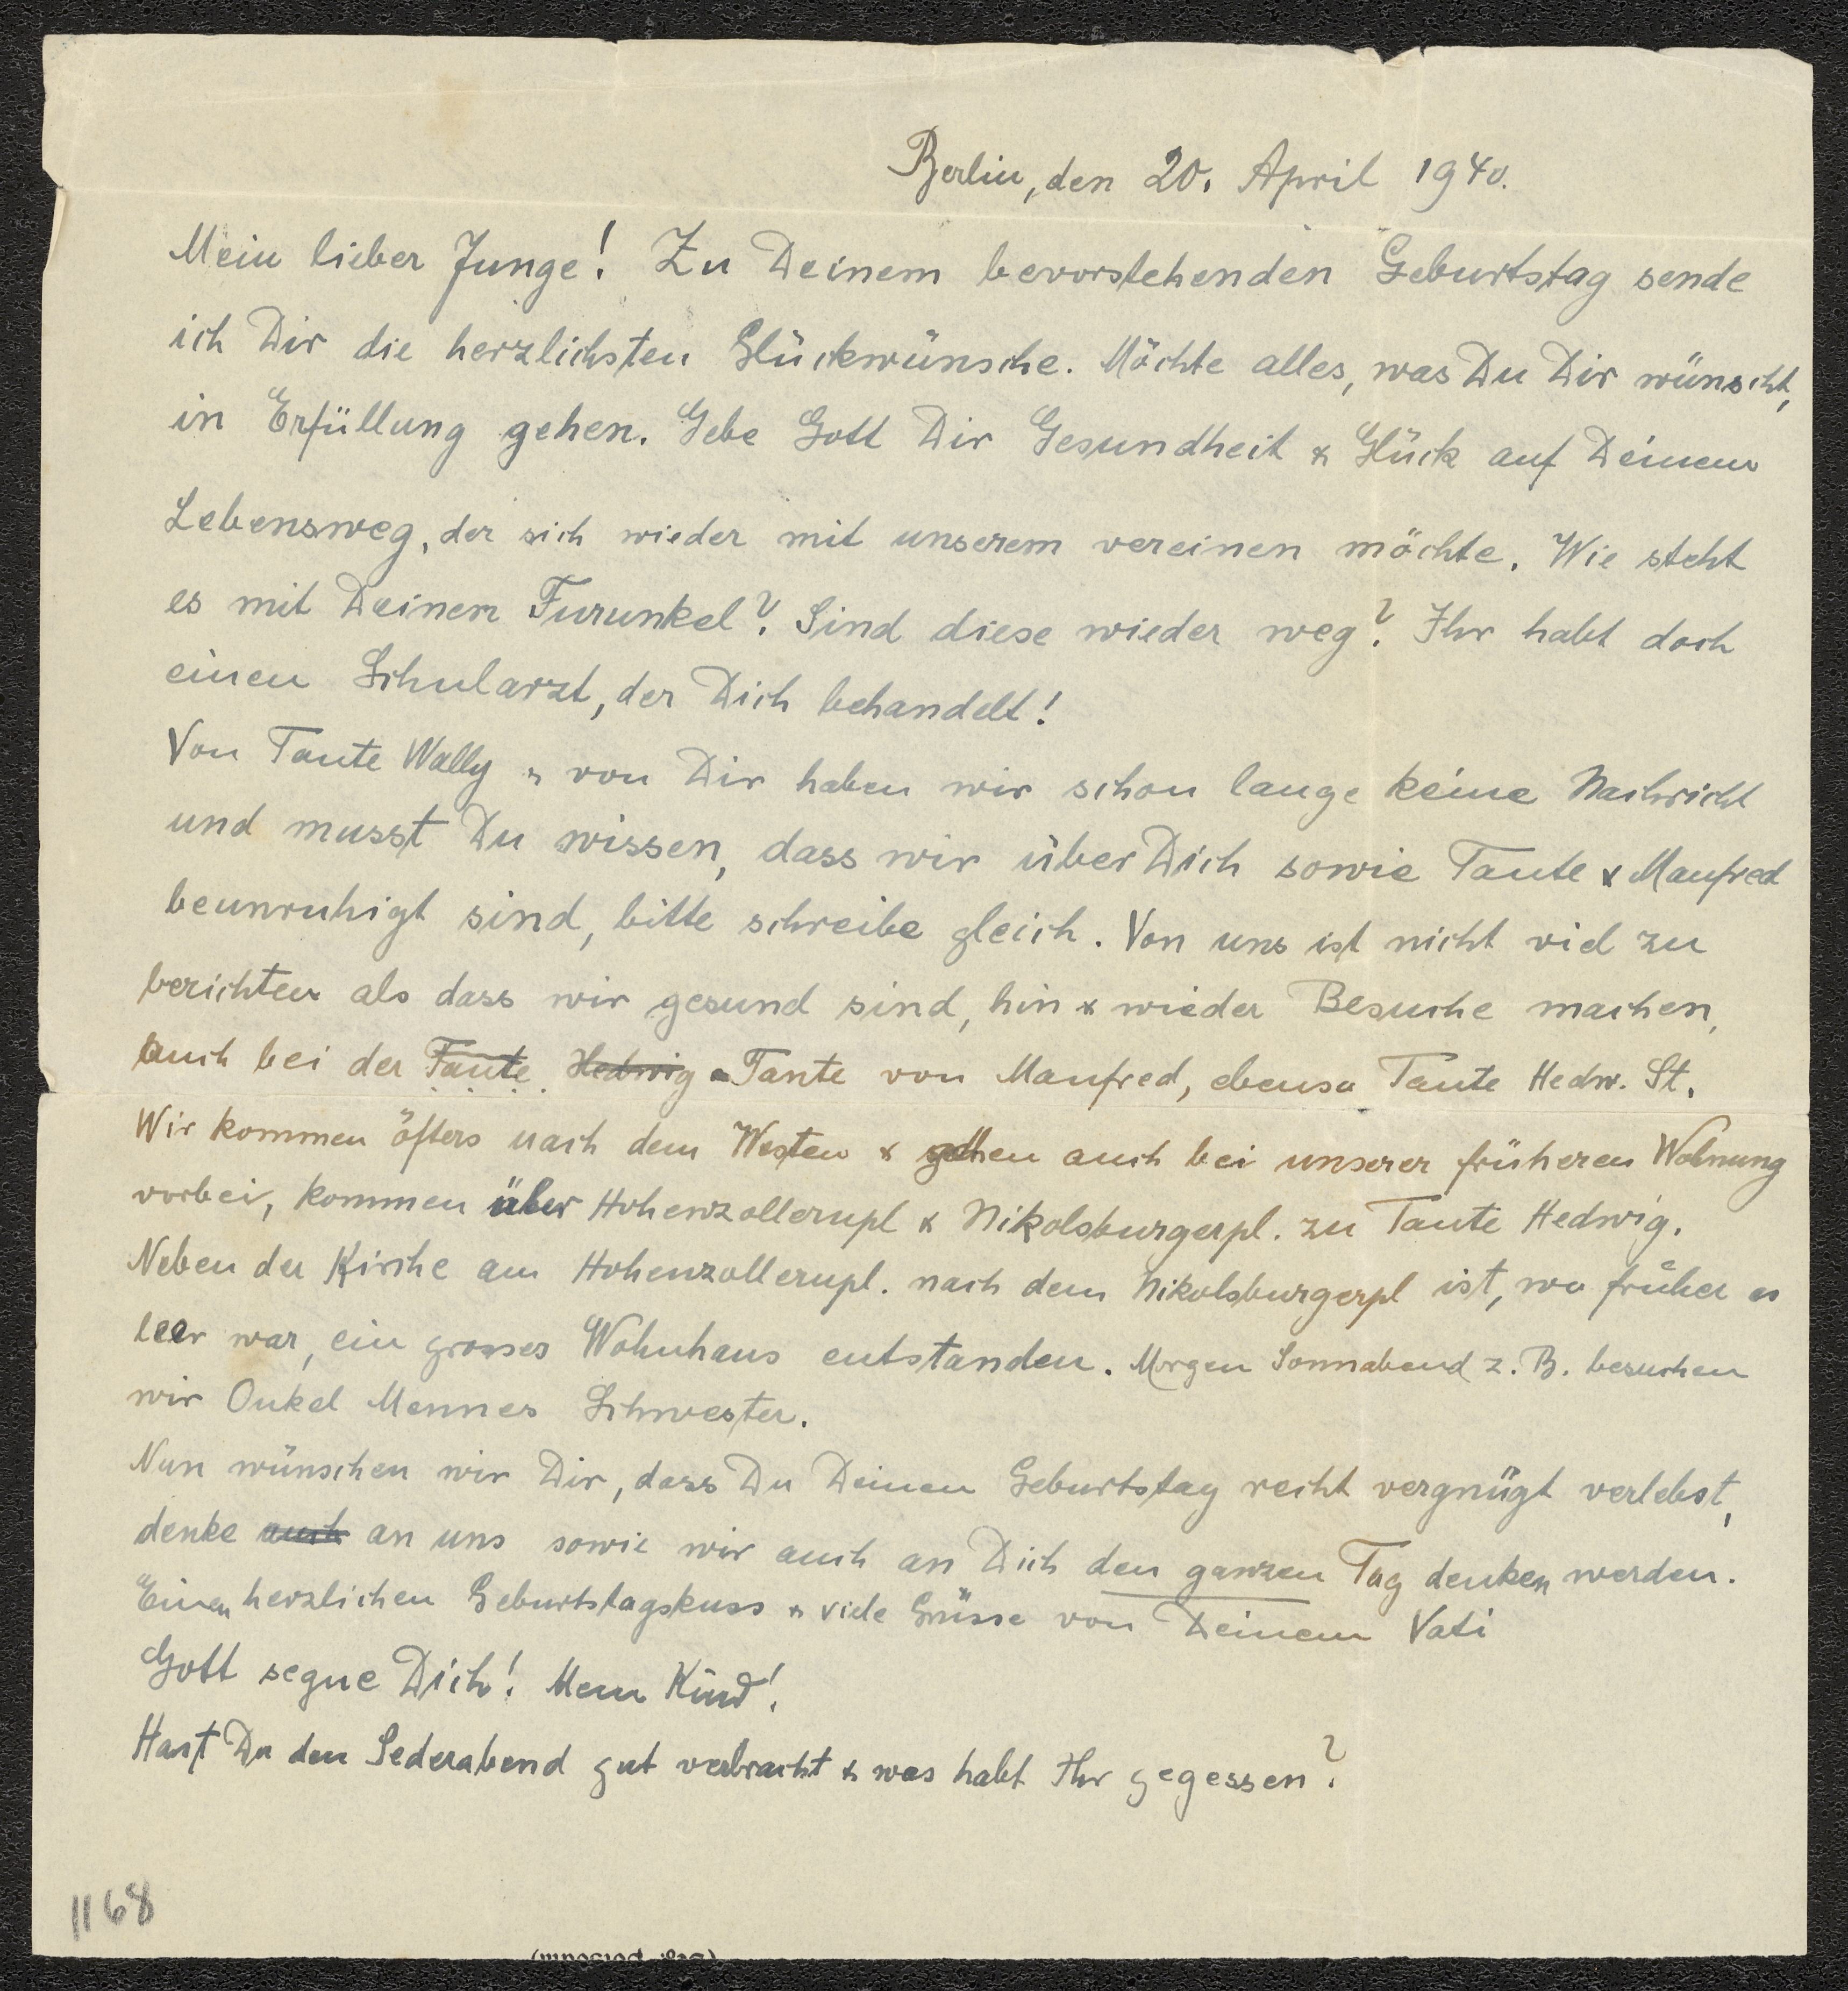 Berlin, den 20. April 1940.
Mein lieber Junge! Zu Deinem bevorstehenden Geburtstag sende
ich Dir die herzlichsten Glückwünsche. Möchte alles, was Du Dir wünscht,
in Erfüllung gehen. Gebe Gott Dir Gesundheit & Glück auf Deinem
Lebensweg, der sich wieder mit unserem vereinen möchte. Wie steht
es mit Deinem Furunkel? Sind diese wieder weg? Ihr habt doch
einen Schularzt, der Dich behandelt!
Von Tante Wally & von Dir haben wir schon lange keine Nachricht
und musst Du wissen, dass wir über Dich sowie Tante & Manfred
beunruhigt sind, bitte schreibe gleich. Von uns ist nicht viel zu
berichten als dass wir gesund sind, hin & wieder Besuche machen,
auch bei der Tante Hedwig Tante von Manfred, ebenso Tante Hedw. St.
Wir kommen öfters nach dem Westen & gehen auch bei unserer früheren Wohnung
vorbei, kommen über Hohenzollernpl & Nikolsburgerpl. zu Tante Hedwig.
Neben der Kirche am Hohenzollernpl. nach dem Nikolsburgerpl ist, wo früher es
leer war, ein grosses Wohnhaus entstanden. Morgen Sonnabend z. B. besuchen
wir Onkel Mennes Schwester.
Nun wünschen wir Dir, dass Du Deinen Geburtstag recht vergnügt verlebst,
denke auch an uns sowie wir auch an Dich den ganzen Tag denken werden.
Einen herzlichen Geburtstagskuss & viele Grüsse von Deinem Vati
Gott segne Dich! Mein Kind!
Hast Du den Sederabend gut verbracht & was habt Ihr gegessen?
1168